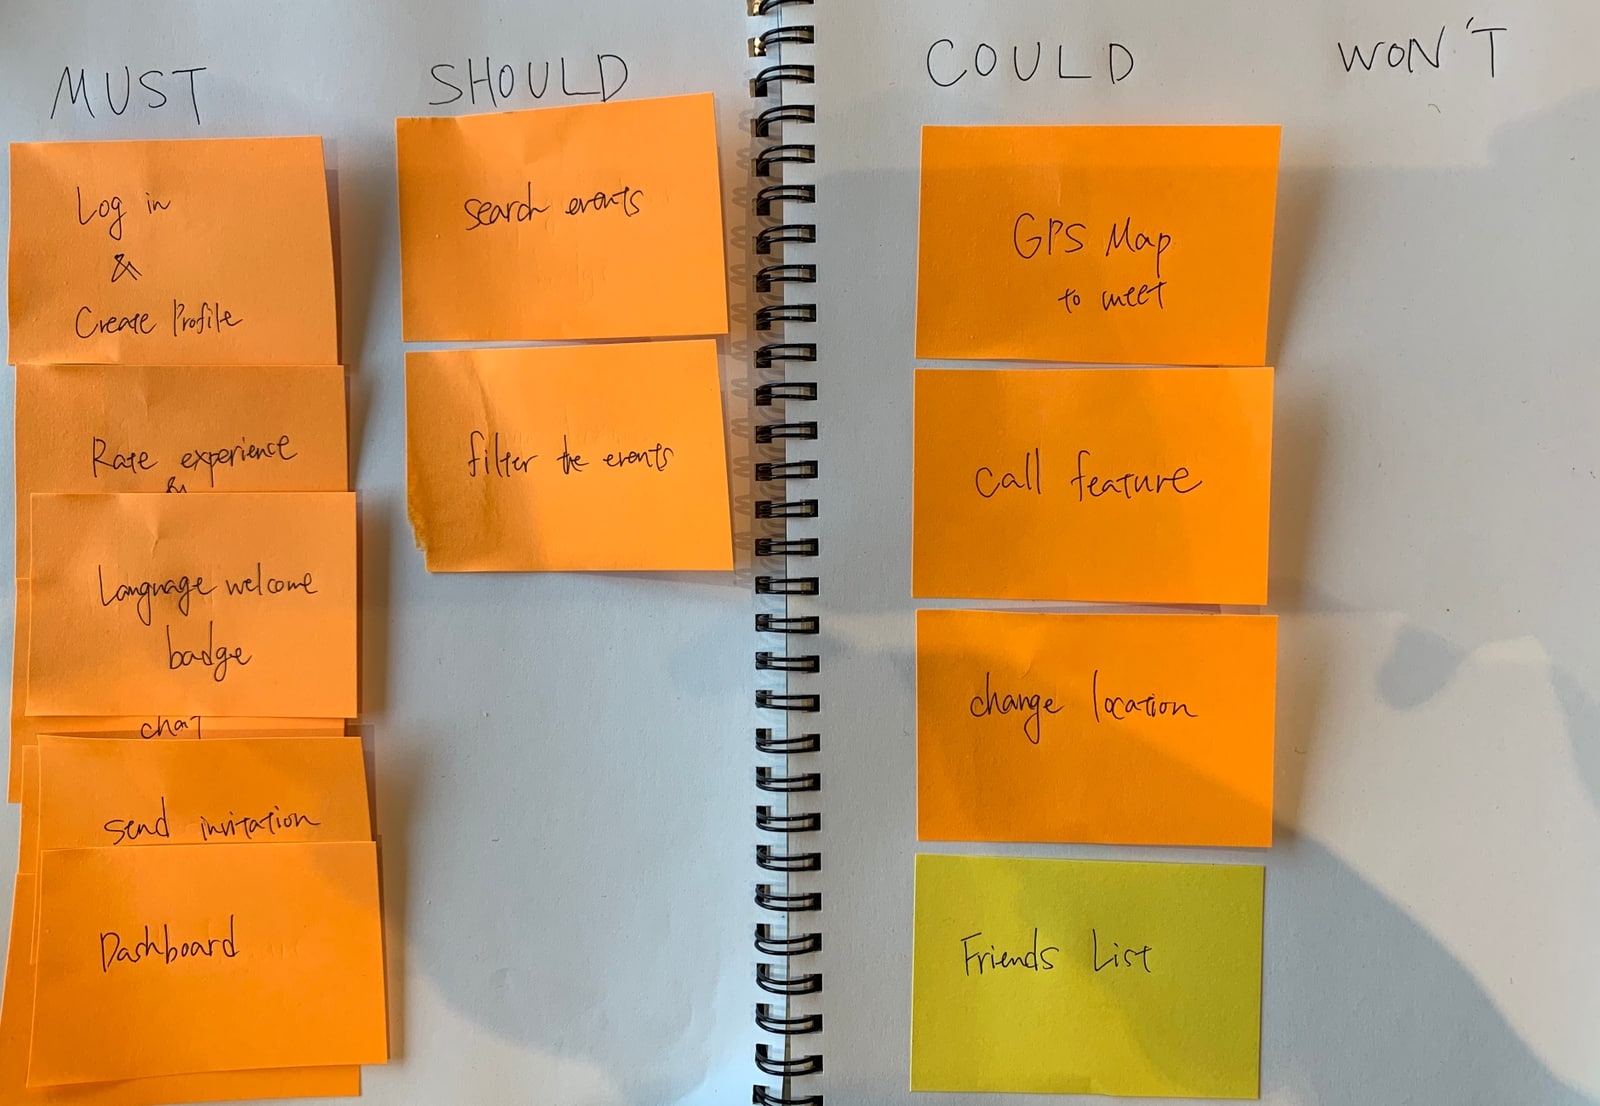 MUST
Log in
&
Create Profile
Rate experience
&
Language welcome
badge
chat
send invitation
Dashboard
SHOULD
search events
filter the events
COULD
GPS Map
to meet
call feature
change location
Friends List
WON'T